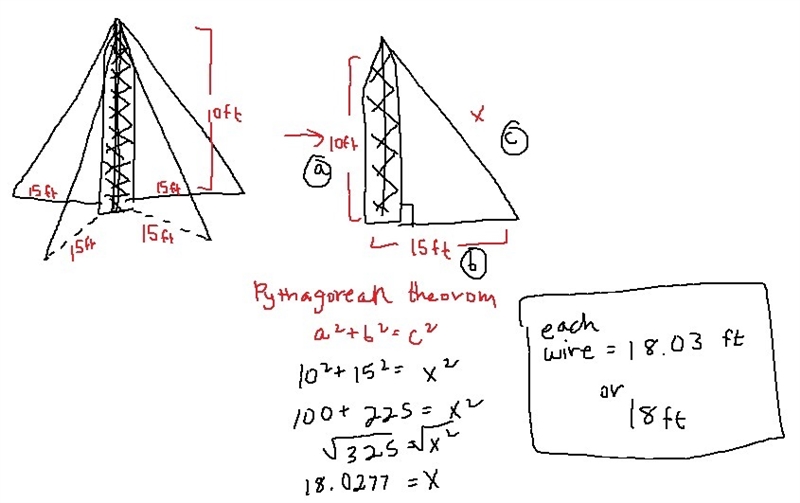 10ft
15ft
15ft
15ft
15ft
10ft
a
x
c
15ft
b
Pythagorean theorom
a²+b²=c²
10²+15²= x²
100+ 225 = x²
√325 = √x²
18.0277 = x
each
wire = 18.03 ft
or
18ft